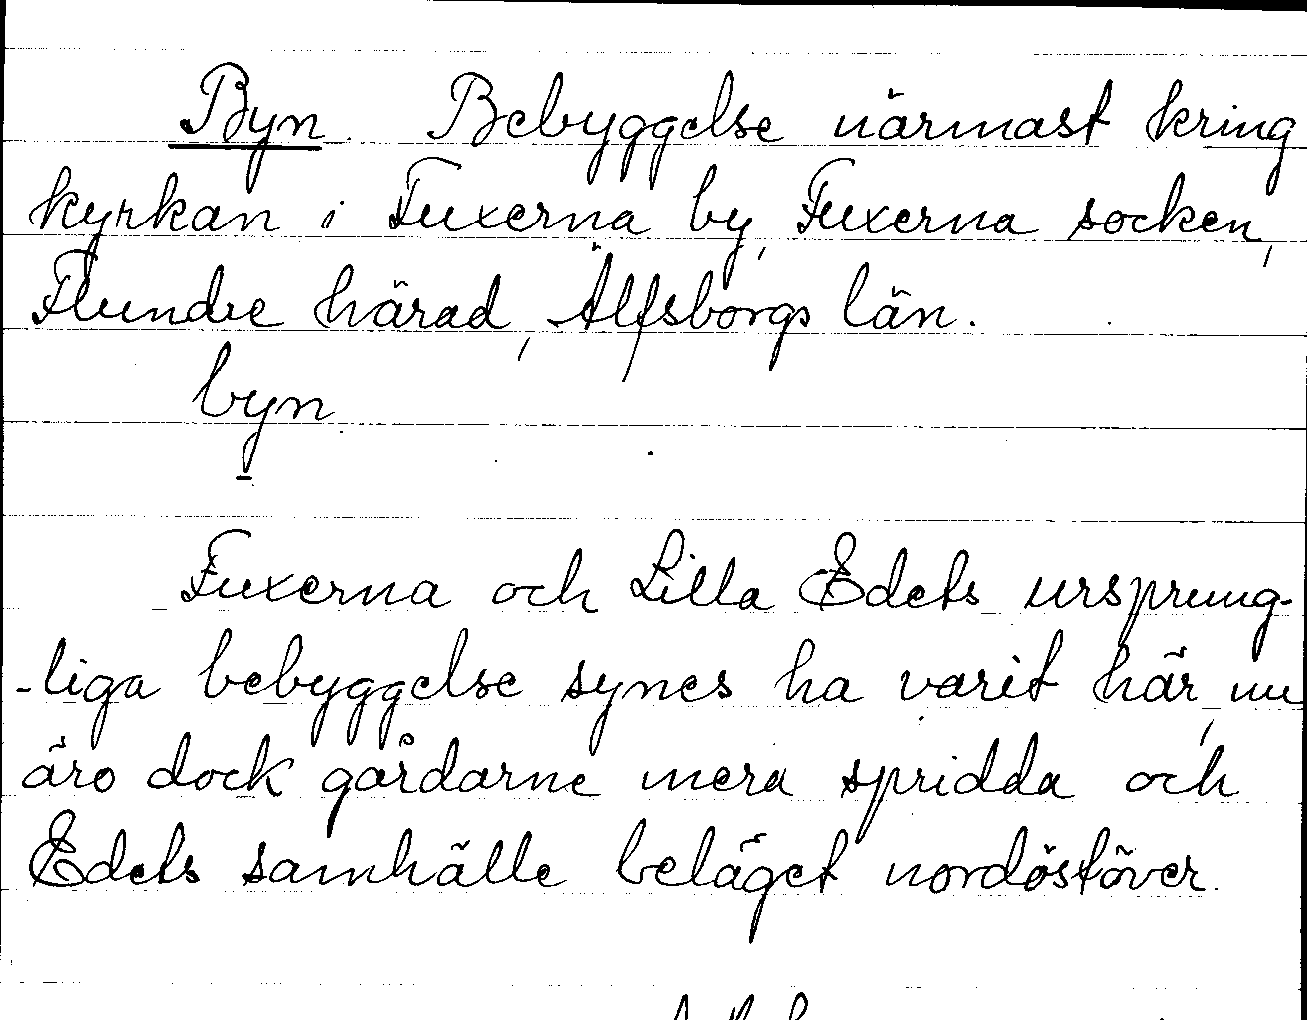 Byn. Bebyggelse närmast kring
kyrkan i Fuxerna by, Fuxerna socken,
Flundre härad, Älfsborgs län.
byn
Fuxerna och Lilla Edets ursprung-
-liga bebyggelse synes ha varit här, nu
äro dock gårdarne mera spridda och
Edets samhälle beläget nordöstöver.